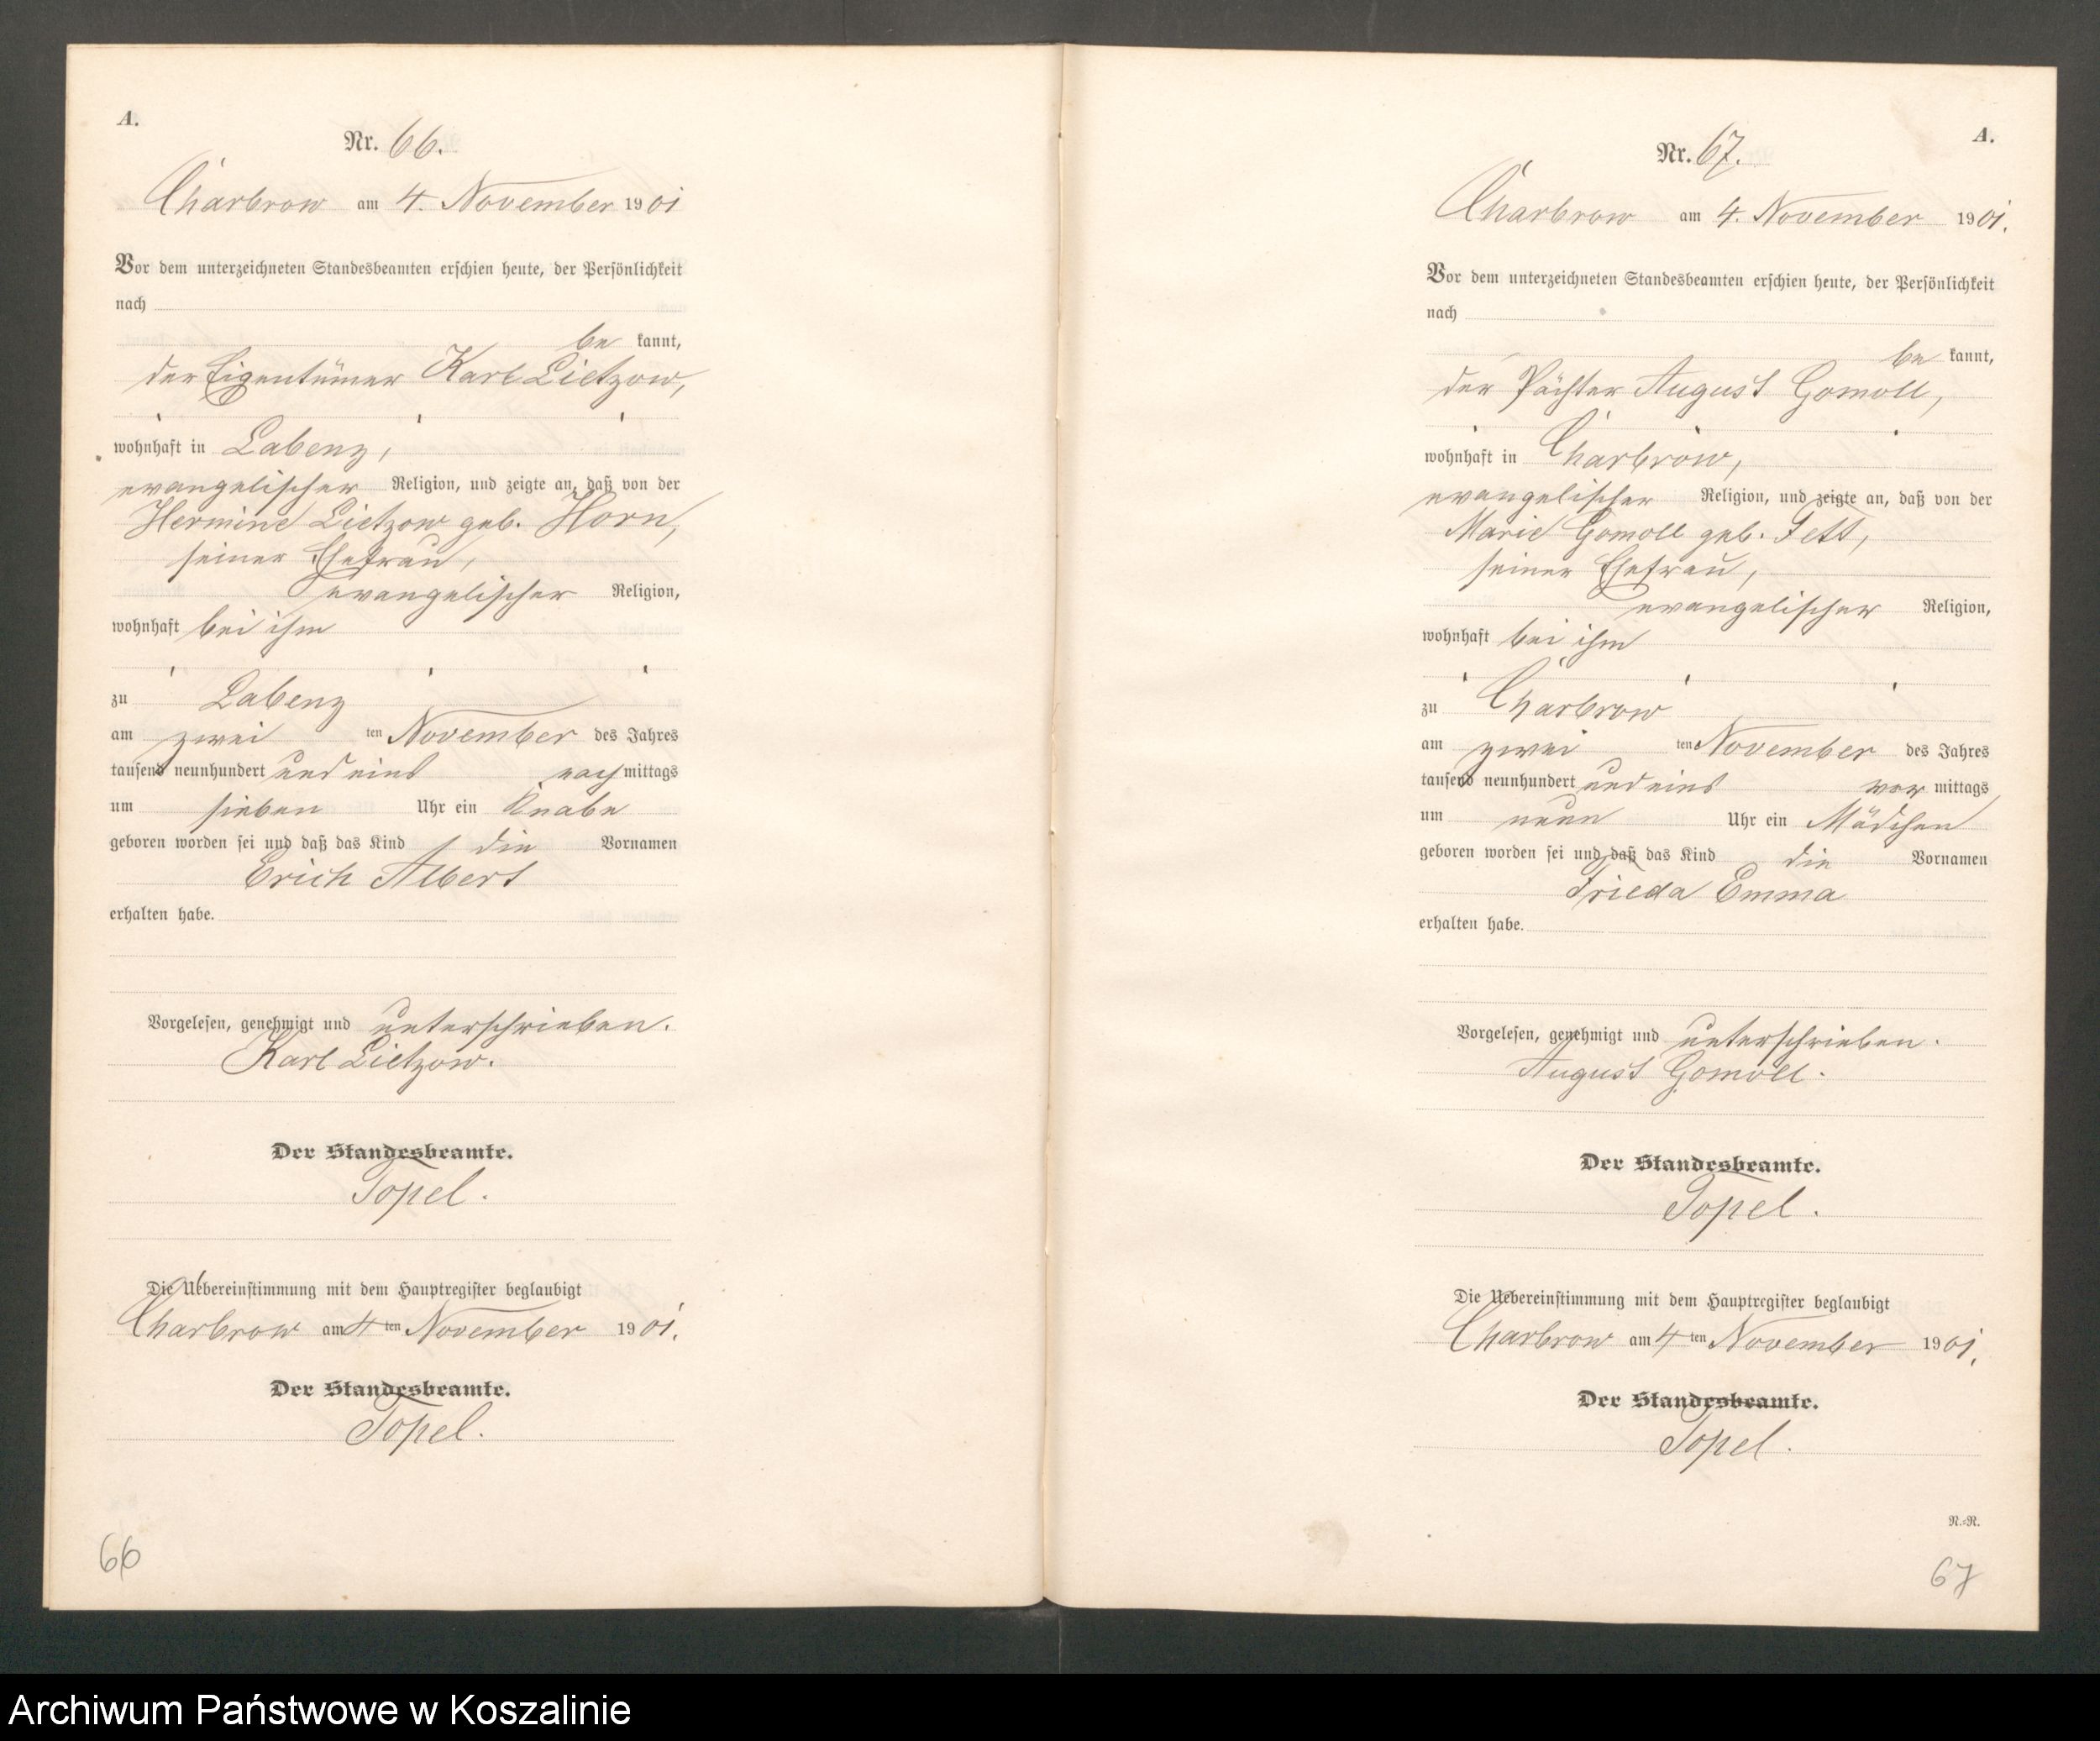 A.
Nr. 66.
Charbrow am 4. November 1901
Vor dem unterzeichneten Standesbeamten erschien heute, der Persönlichkeit
nach
be kannt,
der Eigentümer Karl Lietzow,
wohnhaft in Labenz,
evangelischer Religion, und zeigte an, daß von der
Hermine Lietzow geb. Horn,
seiner Ehefrau,
evangelischer Religion,
wohnhaft bei ihm
zu Labenz
am zwei ten November des Jahres
tausend neunhundert und eins nach mittags
um sieben Uhr ein Knabe
geboren worden sei und daß das Kind die Vornamen
Erich Albert
erhalten habe.
Vorgelesen, genehmigt und unterschrieben.
Karl Lietzow.
Der Standesbeamte.
Topel.
Die Uebereinstimmung mit dem Hauptregister beglaubigt
Charbrow am 4 ten November 1901.
Der Standesbeamte.
Topel.
66
A.
Nr. 67.
Charbrow am 4. November 1901.
Vor dem unterzeichneten Standesbeamten erschien heute, der Persönlichkeit
nach
be kannt,
der Pächter August Gomoll,
wohnhaft in Charbrow,
evangelischer Religion, und zeigte an, daß von der
Marie Gomoll geb. Fett,
seiner Ehefrau,
evangelischer Religion,
wohnhaft bei ihm
zu Charbrow
am zwei ten November des Jahres
tausend neunhundert und eins vor mittags
um neun Uhr ein Mädchen
geboren worden sei und daß das Kind die Vornamen
Frieda Emma
erhalten habe.
Vorgelesen, genehmigt und unterschrieben.
August Gomoll.
Der Standesbeamte.
Topel.
Die Uebereinstimmung mit dem Hauptregister beglaubigt
Charbrow am 4 ten November 1901.
Der Standesbeamte.
Topel.
N.=R.
67
Archiwum Państwowe w Koszalinie